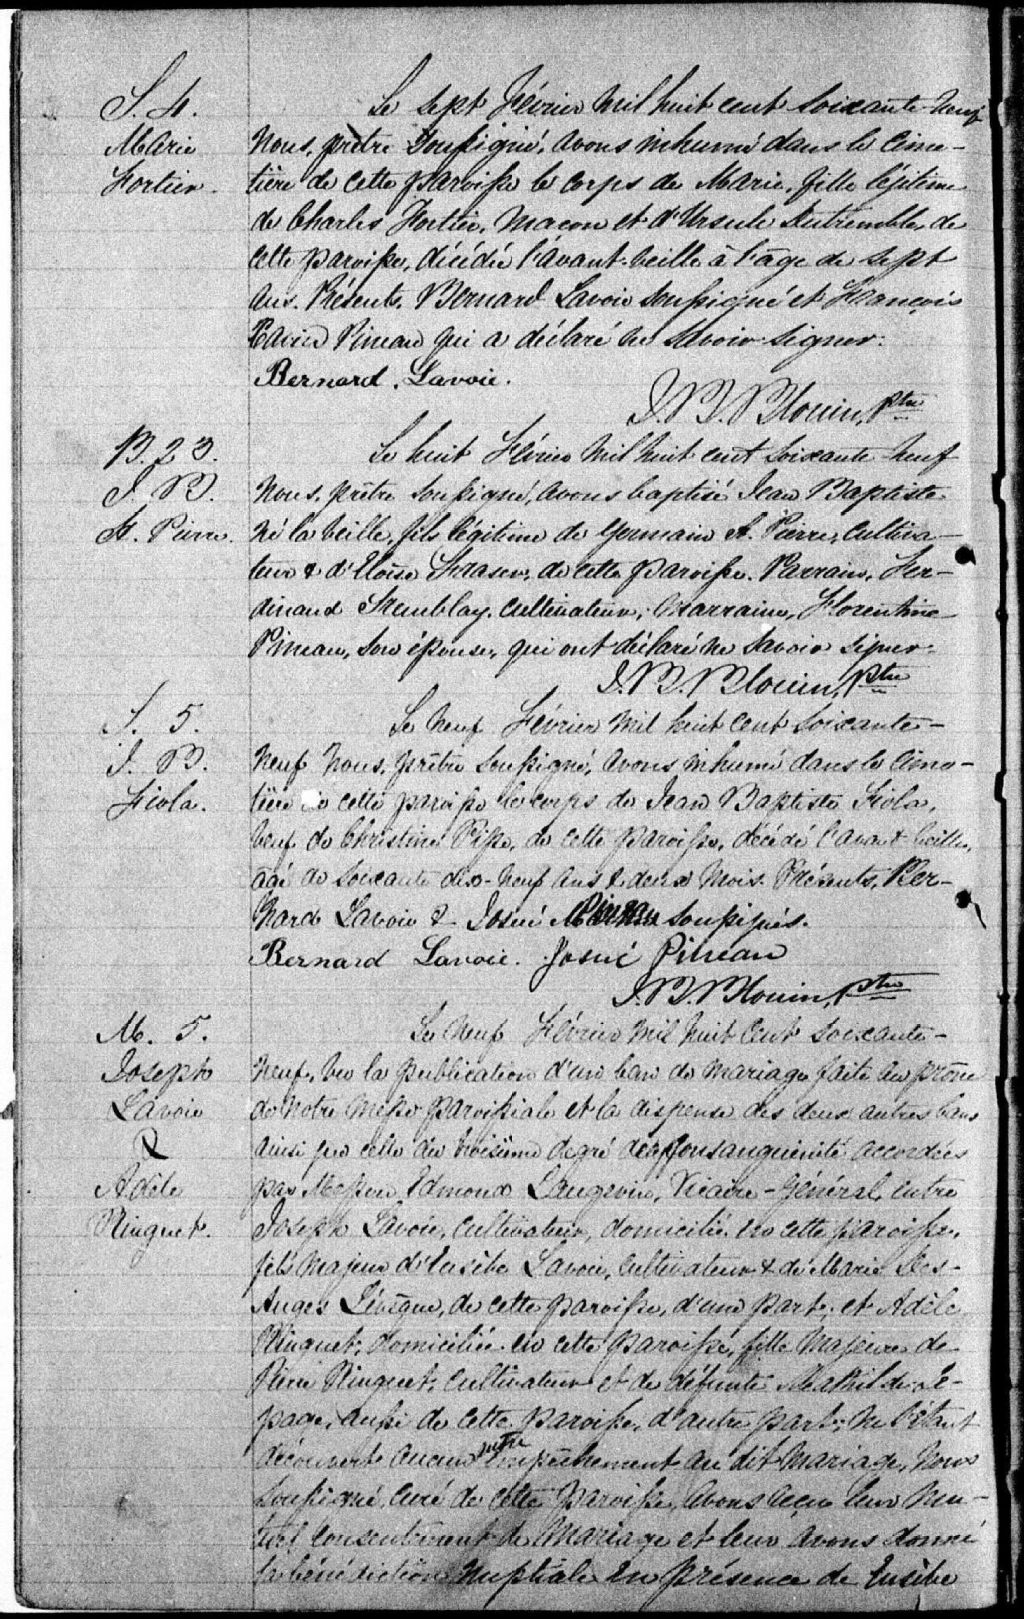 S. 4.
Marie
Fortier.
Le sept Février mil huit cent soixante-neuf
Nous, prêtre soussigné, avons inhumé dans le cime-
tière de cette paroisse le corps de Marie, fille légitime
de Charles Fortier, maçon et d'Ursule Dutremble, de
cette paroisse, décédée l'avant-veille à l'âge de sept
ans. Présents, Bernard Lavoie soussigné et François
Xavier Pineau qui a déclaré ne savoir signer.
Bernard. Lavoie.
J. B. Blouin, Ptre
B. 23.
J. B.
St. Pierre.
Le huit Février mil huit cent soixante neuf
Nous, prêtre soussigné, avons baptisé Jean Baptiste
né la veille, fils légitime de Germain St. Pierre, cultiva-
teur & d'Eloïse Fraser, de cette paroisse. Parrain, Fer-
dinand Tremblay, cultivateur; Marraine, Florentine
Pineau, son épouse, qui ont déclaré ne savoir signer.
J. B. Blouin, Ptre
S. 5.
J. B.
Fiola.
Le neuf Février mil huit cent soixante-
neuf Nous, prêtre soussigné, avons inhumé dans le cime-
tière de cette paroisse le corps de Jean Baptiste Fiola,
veuf de Christine, de cette paroisse, décédé l'avant-veille,
âgé de soixante dix-neuf ans & deux mois. Présents, Ber-
nard Lavoie & Josué Pineau soussignés.
Bernard Lavoie. Josué Pineau
J. B. Blouin, Ptre
M. 5.
Joseph
Lavoie
&
Adèle
Ringuet.
Le neuf Février mil huit cent soixante-
neuf, vu la publication d'un ban de mariage faite au prône
de notre messe paroissiale et la dispense des deux autres bans
ainsi que celle du troisième degré de consanguinité accordées
par Messire Edmond Langevin, Vicaire-Général, entre
Joseph Lavoie, cultivateur, domicilié en cette paroisse,
fils majeur d'Eusèbe Lavoie, cultivateur & de Marie Des-
Anges Lévêque, de cette paroisse, d'une part; et Adèle
Ringuet, domiciliée en cette paroisse, fille majeure de
Pierre Ringuet, cultivateur et de défunte Mathilde Le-
page, aussi de cette paroisse, d'autre part; ne s'étant
découvert aucun autre empêchement au dit mariage, Nous
soussigné, curé de cette paroisse, avons reçu leur mu-
tuel consentement de mariage et leur avons donné
la bénédiction nuptiale en présence de Eusèbe